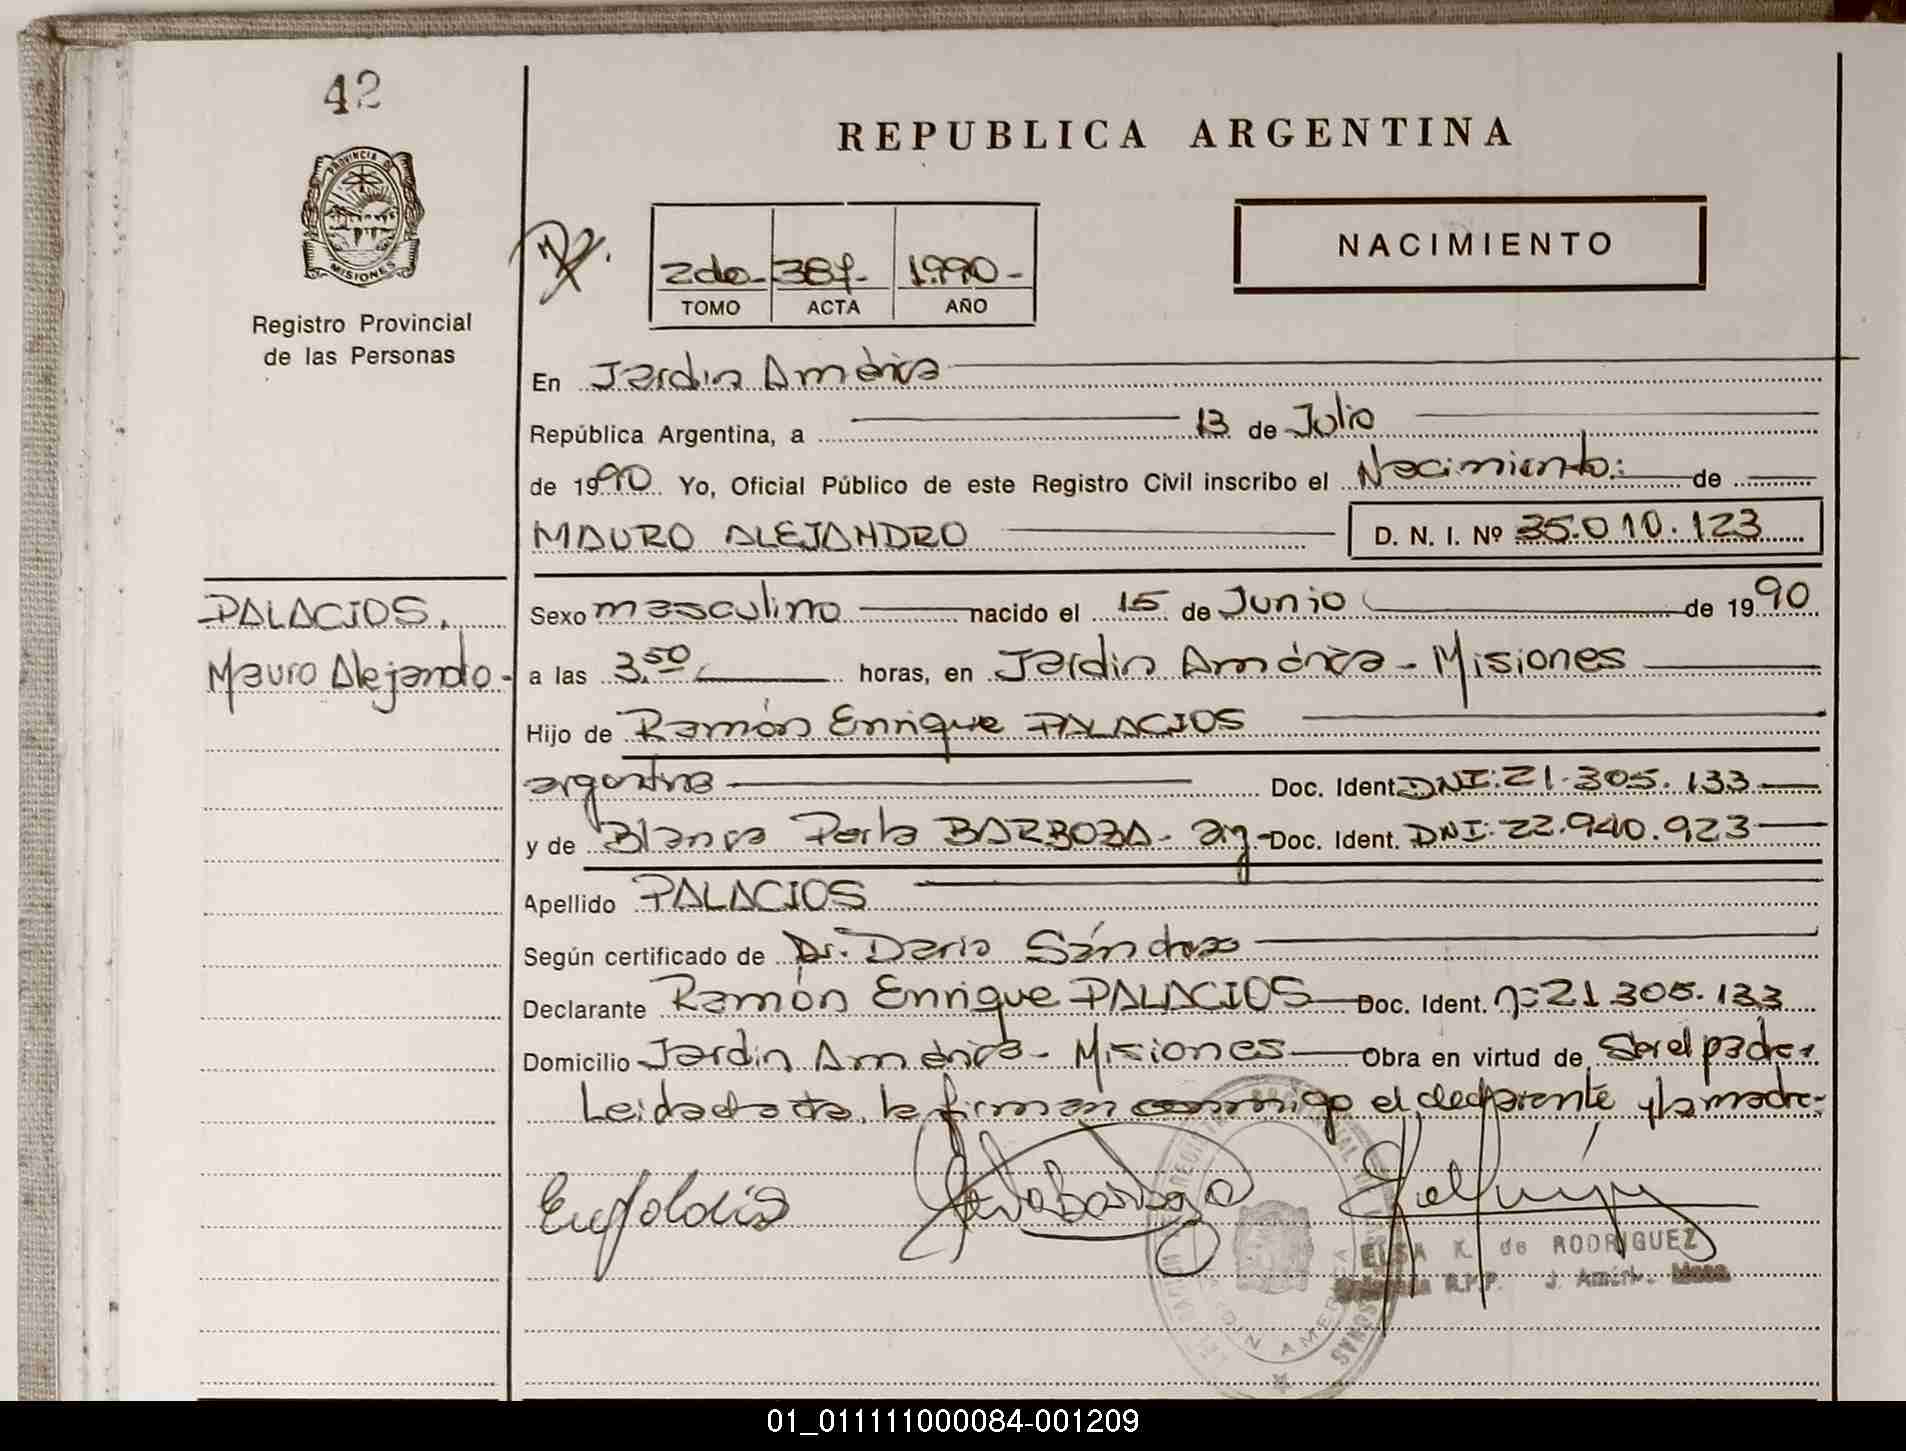 42
REPUBLICA ARGENTINA
PROVINCIA DE
MISIONES
Registro Provincial
de las Personas
2do- 387- 1.990-
TOMO ACTA AÑO
NACIMIENTO
En Jardin América
República Argentina, a 13 de Julio
de 1990 Yo, Oficial Público de este Registro Civil inscribo el Nacimiento: de
MAURO ALEJANDRO D. N. I. Nº 35.010.123
PALACIOS,
Mauro Alejandro-
Sexo masculino nacido el 15 de Junio de 1990
a las 3,50 horas, en Jardin América - Misiones
Hijo de Ramón Enrique PALACIOS
argentina Doc. Ident. DNI: 21.305.133
y de Blanca Perla BARBOZA - arg- Doc. Ident. DNI: 22.940.923
Apellido PALACIOS
Según certificado de Dr. Dario Sánchez
Declarante Ramón Enrique PALACIOS Doc. Ident. nº 21.305.133
Domicilio Jardin América - Misiones Obra en virtud de Ser el padre.
Leida el acta, la firman conmigo el declarante y la madre-
ELSA K. de RODRIGUEZ
R.P.P. J. Amér. Mnes
01_011111000084-001209